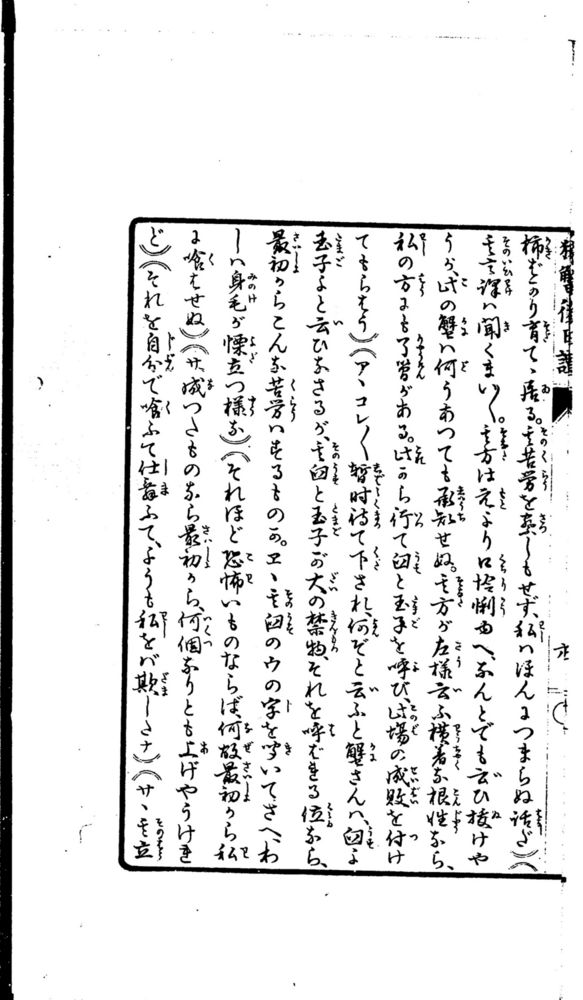 猿蟹後日譚
柿ばかり育てゝ居る。其苦労を察しもせず、私ハほんにつまらぬ話だ)(
其言譯ハ聞くまい〳〵。其方は元より口怜悧ゆへ、なんとでも云ひ抜けや
うが、此の蟹ハ何うあつても承知せぬ。其方が左様云ふ横着な根性なら、
私の方にも了簡がある。此から行て臼と玉子を呼び此場の成敗を付け
てもらはう)(アヽコレ〳〵暫時待て下され、何ぞと云ふと蟹さんハ、臼よ
玉子よと云ひなさるが、其臼と玉子が大の禁物、それを呼ばれる位なら、
最初からこんな苦労ハするものか。ヱヽ其臼のウの字を聞いてさへ、わ
しハ身毛が慄立つ様な)(それほど恐怖いものならば、何故最初から私
に喰はせぬ)(サヽ成つたものなら最初から、何個なりとも上げやうけれ
ど)(それを自分で喰ふて仕舞ふて、ようも私をバ欺したナ)(サヽ其立